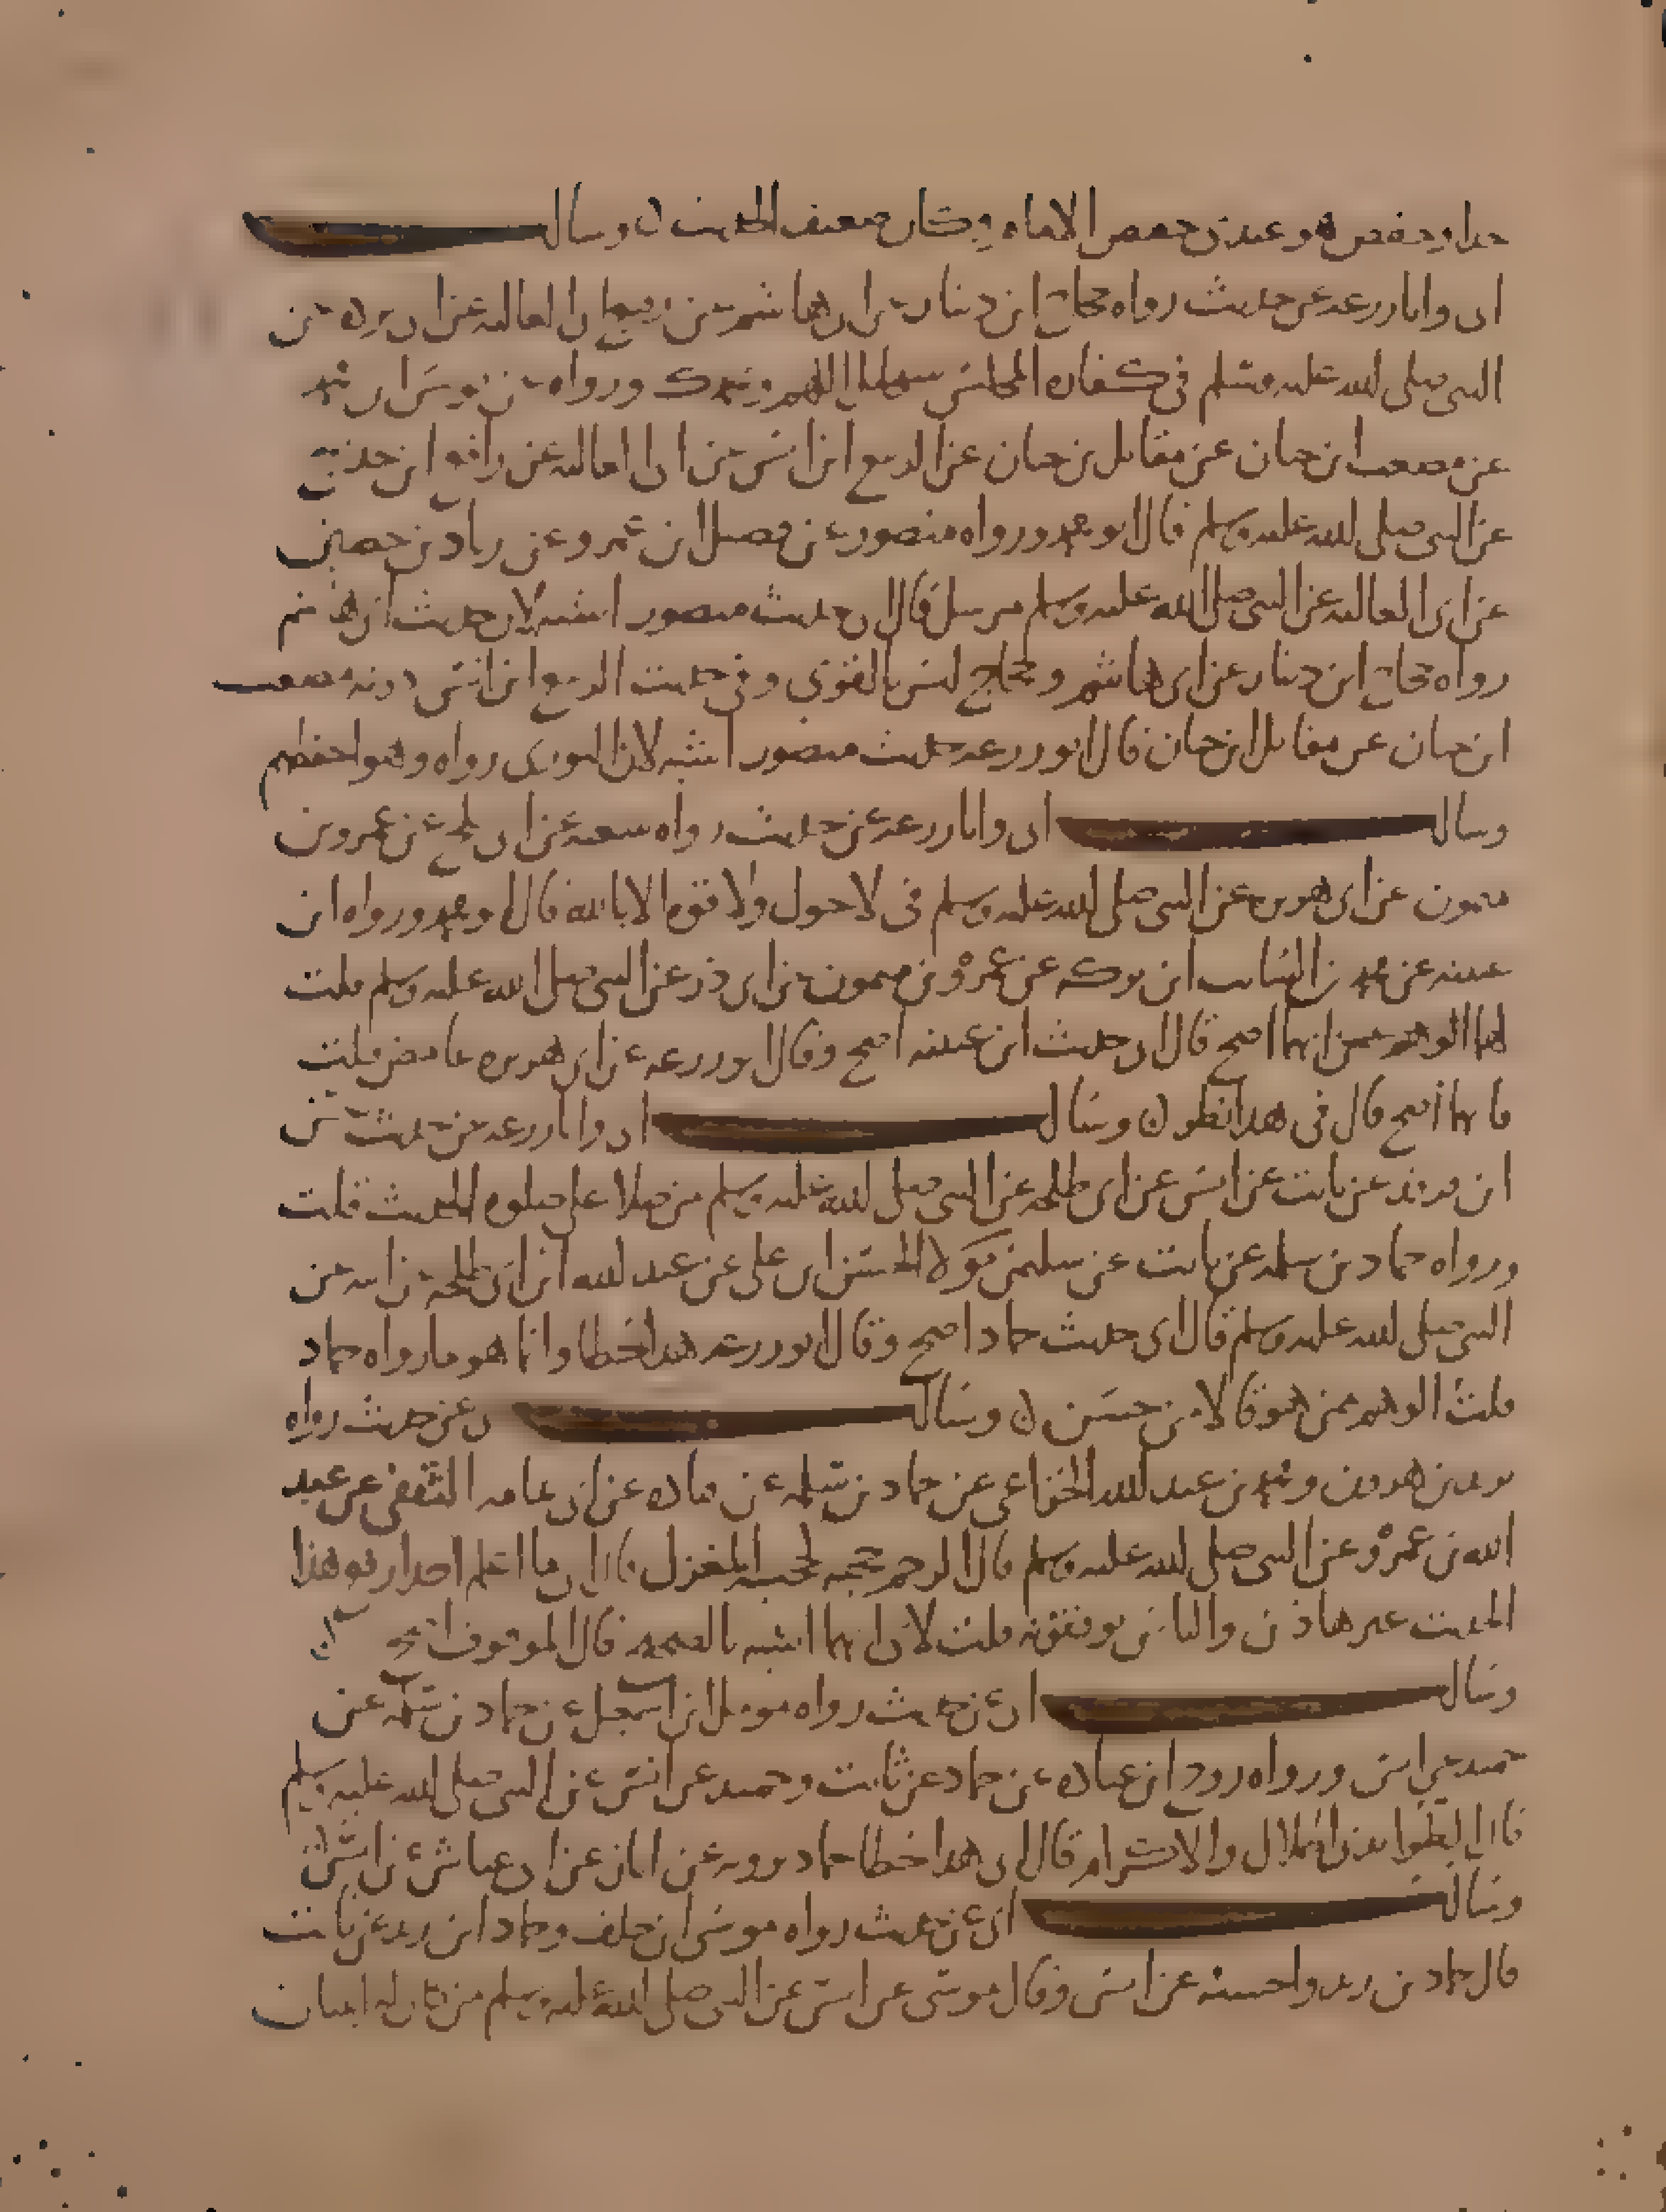 وحفص هو عبيد بن حفص الامام وكان ضعيف الحديث ن وسالت
ابي وابا زرعه عن حديث رواه حجاج ابن دينار عن ابي هاشم عن رفيع ابي العاليه عن ابي برزه عن
النبي صلى الله عليه وسلم في كفاره المجلس سبحانك اللهم وبحمدك ورواه عن يونس ابن محمد
عن مصعب ابن حيان عن مقاتل بن حيان عن الربيع ابن انس عن ابي العاليه عن رافع ابن خديج
عن النبي صلى الله عليه وسلم قال ابو محمد ورواه منصور عن فضيل ابن عمرو عن زياد بن حصين
عن ابي العاليه عن النبي صلى الله عليه وسلم مرسل قال ابي حديث منصور اشبه لان حديث ابي هاشم
رواه حجاج ابن دينار عن ابي هاشم وحجاج ليس بالقوي وفي حديث الربيع ابن انس دونه مصعب
ابن حيان عن مقاتل ابن حيان قال ابو زرعه حديث منصور اشبه لان الثوري رواه وهو احفظهم
وسالت ابي وابا زرعه عن حديث رواه شعبه عن ابي بلج عن عمرو بن
ميمون عن ابي هريره عن النبي صلى الله عليه وسلم في لا حول ولا قوه الا بالله قال ابو محمد ورواه ابن
عيينه عن محمد بن السائب ابن بركه عن عمرو بن ميمون عن ابي ذر عن النبي صلى الله عليه وسلم قلت
لهما الوهم ممن ايهما اصح قال ابي حديث ابن عيينه اصح وقال ابو زرعه عن ابي هريره غامض قلت
فايهما اصح قال في هذا نظر ن وسالت ابي وابا زرعه عن حديث
ابن عن ثابت عن انس عن ابي طلحه عن النبي صلى الله عليه وسلم من صلا علي صلوه الحديث قلت
ورواه حماد بن سلمه عن ثابت عن سليمن مولا الحسن ابن علي عن عبد الله ابن ابي طلحه عن ابيه عن
النبي صلى الله عليه وسلم قال ابي حديث حماد اصح وقال ابو زرعه هذا خطا وانما هو ما رواه حماد
قلت الوهم ممن هو قالا من حسن ن وسالت ابي عن حديث رواه
يزيد بن هرون ومحمد بن عبد الله الخزاعي عن حماد بن سلمه عن قتاده عن ابي ثمامه الثقفي عن عبد
الله بن عمرو عن النبي صلى الله عليه وسلم قال الرحم حجنه كحجنه المغزل قال ابي ما اعلم احدا رفع هذا
الحديث غير هاذين والباقي يوقفونه قلت لابي ايهما اشبه بالصحه قال الموقوف اصح
وسالت ابي عن حديث رواه مومل ابن اسمعيل عن حماد بن سلمه عن
حميد عن انس ورواه روح ابن عباده عن حماد عن ثابت وحميد عن انس عن النبي صلى الله عليه وسلم
قال الظوا بذي الجلال والاكرام قال ابي هذا خطا حماد يرويه عن ابان ابن ابي عياش عن انس
وسالت ابي عن حديث رواه موسى ابن خلف وحماد ابن زيد عن ثابت
قال حماد بن زيد واحسبه عن انس وقال موسى عن انس عن النبي صلى الله عليه وسلم من كان له لسانان